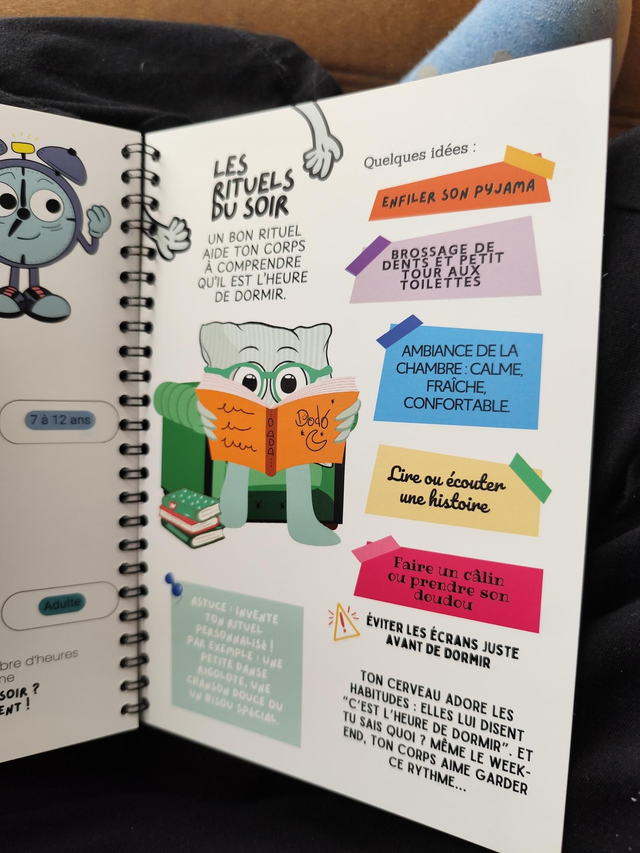 7 à 12 ans
Adulte
bre d'heures
me
SOIR ?
ENT !
LES
RITUELS
DU SOIR
UN BON RITUEL
AIDE TON CORPS
À COMPRENDRE
QU'IL EST L'HEURE
DE DORMIR.
Dodo
Quelques idées :
ENFILER SON PYJAMA
BROSSAGE DE
DENTS ET PETIT
TOUR AUX
TOILETTES
AMBIANCE DE LA
CHAMBRE : CALME,
FRAÎCHE,
CONFORTABLE.
Lire ou écouter
une histoire
Faire un câlin
ou prendre son
doudou
ASTUCE : INVENTE
TON RITUEL
PERSONNALISÉ !
PAR EXEMPLE : UNE
PETITE DANSE
RIGOLOTE, UNE
CHANSON DOUCE OU
UN BISOU SPÉCIAL.
ÉVITER LES ÉCRANS JUSTE
AVANT DE DORMIR
TON CERVEAU ADORE LES
HABITUDES : ELLES LUI DISENT
"C'EST L'HEURE DE DORMIR". ET
TU SAIS QUOI ? MÊME LE WEEK-
END, TON CORPS AIME GARDER
CE RYTHME...